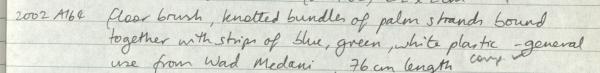 2002 A164 floor brush, knotted bundles of palm strands bound
together with strips of blue, green, white plastic - general
use from Wad Medani 76 cm length